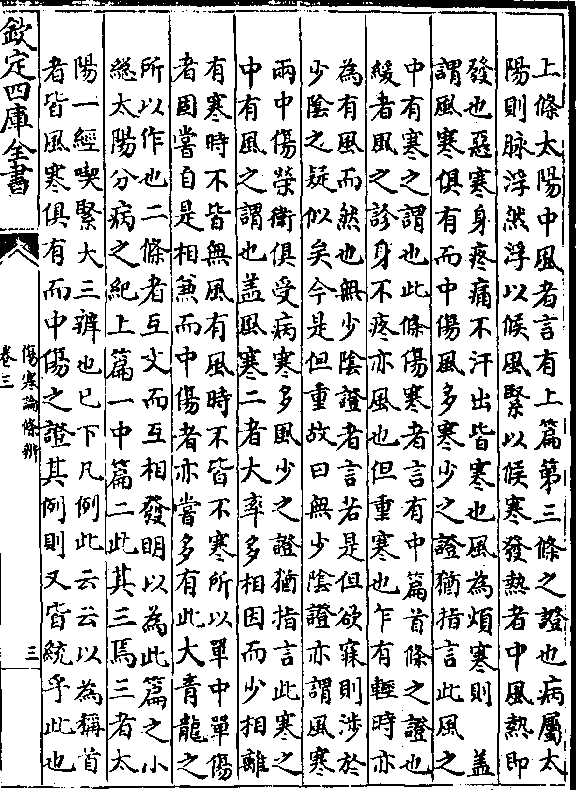 上條太陽中風者言有上篇第三條之證也病屬太
陽則脉浮然浮以候風緊以候寒發熱者中風熱即
發也惡寒身疼痛不汗出皆寒也風為煩寒則　盖
謂風寒俱有而中傷風多寒少之證猶指言此風之
中有寒之謂也此條傷寒者言有中篇首條之證也
緩者風之診身不疼亦風也但重寒也乍有輕時亦
為有風而然也無少陰證者言若是但欲寐則涉於
少陰之疑似矣今是但重故曰無少陰證亦謂風寒
兩中傷榮衛俱受病寒多風少之證猶指言此寒之
中有風之謂也盖風寒二者大率多相因而少相離
有寒時不皆無風有風時不皆不寒所以單中單傷
者固嘗自是相兼而中傷者亦嘗多有此大青龍之
所以作也二條者互文而互相發明以為此篇之小
總太陽分病之紀上篇一中篇二此其三焉三者太
陽一經喫緊大三辨也已下凡例此云云以為稱首
者皆風寒俱有而中傷之證其例則又皆統乎此也
欽定四庫全書
傷寒論條辨
卷三
三